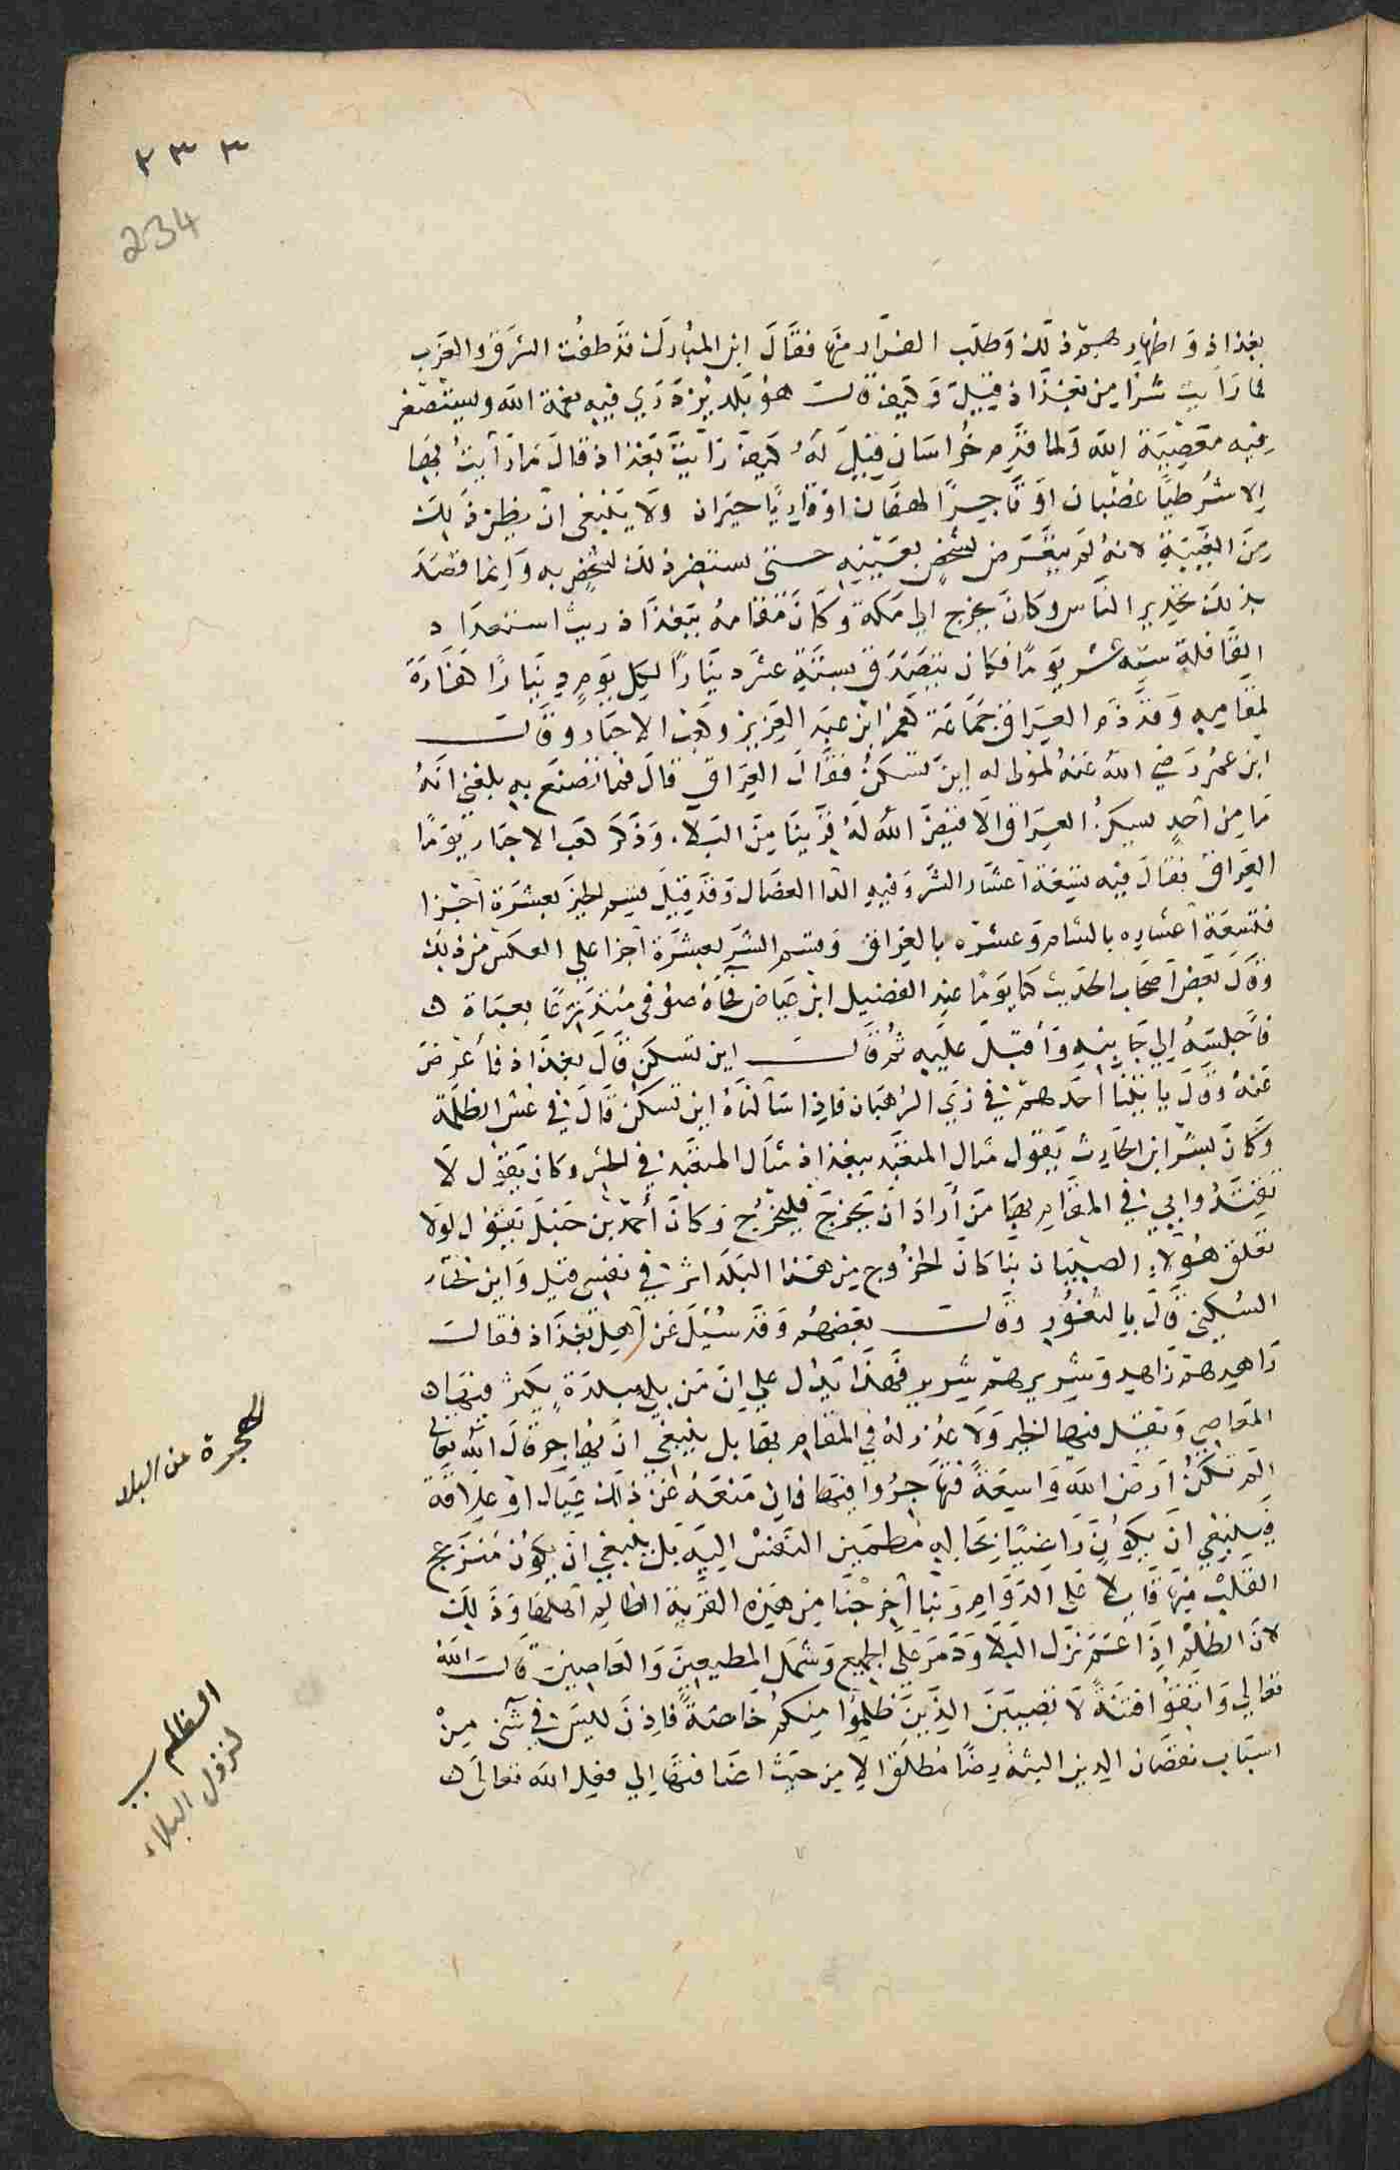 ٢٣٣
234
بغداذ واظهارهم ذلك وطلب الفرار منها فقال ابن المبارك قد طفت الشرق والغرب
فما رايت شرا من بغداذ قيل وكيف قال هو بلد تزدري فيه نعمة الله وتستصغر
فيه معصية الله ولما قدم خراسان قيل له كيف رايت بغداذ قال ما رايت بها
الا شرطيا غضبان او تاجرا لهفان او قاريا حيران ولا ينبغي ان يظن ذلك
من الغيبة لانه لم يتعرض لشخص بعينه حتى يستضر ذلك الشخص به وانما قصد
بذلك تحذير الناس وكان يخرج الى مكة وكان مقامه ببغداذ ريث استعداد
القافلة ستة عشر يوما فكان يتصدق بستة عشر دينارا لكل يوم دينارا كفارة
لمقامه وقد ذم العراق جماعة كعمر ابن عبد العزيز وكعب الاحبار وقال
ابن عمر رضي الله عنه لمولى له اين تسكن فقال العراق قال فما تصنع به بلغني انه
ما من احد يسكن العراق الا قيض الله له قرينا من البلا. وذكر كعب الاحبار يوما
العراق فقال فيه تسعة اعشار الشر وفيه الدا العضال وقد قيل قسم الخير بعشرة اجزا
فتسعة اعشاره بالشام وعشره بالعراق وقسم الشر بعشرة اجزا على العكس من ذلك
وقال بعض اصحاب الحديث كنا يوما عند الفضيل ابن عياض فجاه صوفي متدرعا بعباة
فاجلسه الى جانبه واقبل عليه ثم قال اين تسكن قال بغداذ فاعرض
عنه وقال ياتينا احدهم في زي الرهبان فاذا سالناه اين تسكن قال في عش الظلمة
وكان بشر ابن الحارث يقول مثال المتعبد ببغداذ مثال المتعبد في الحش وكان يقول لا
تقتدوا بي في المقام بها من اراد ان يخرج فليخرج وكان أحمد بن حنبل يقول لولا
تعلق هؤلاء الصبيان بنا كان الخروج من هذا البلد اثر في نفسي قيل واين تختار
السكنى قال بالثغور وقال بعضهم وقد سئل عن اهل بغداذ فقال
زاهدهم زاهد وشريرهم شرير فهذا يدل على ان من بلي ببلدة يكثر فيها
المعاصي وتقل فيها الخير ولا عذر له في المقام بها بل ينبغي ان يهاجر قال الله تعالى
الم تكن ارض الله واسعة فتهاجروا فيها فان منعه عن ذلك عيال او علاقة
فلا ينبغي ان يكون راضيا بحاله مطمين النفس اليه بل ينبغي ان يكون منزعج
القلب منها قايلا على الدوام ربنا اخرجنا من هذه القرية الظالم اهلها وذلك
لان الظلم اذا عم نزل البلا ودمر على الجميع وشمل المطيعين والعاصين قال الله
تعالى واتقوا فتنة لا تصيبن الذين ظلموا منكم خاصة فاذن ليس في شي من
اسباب نقصان الدين البتة رضا مطلقا الا من حيث اضافتها الى فعل الله تعالى
الهجرة عن البلاد
الظلم سبب
لنزول البلاء